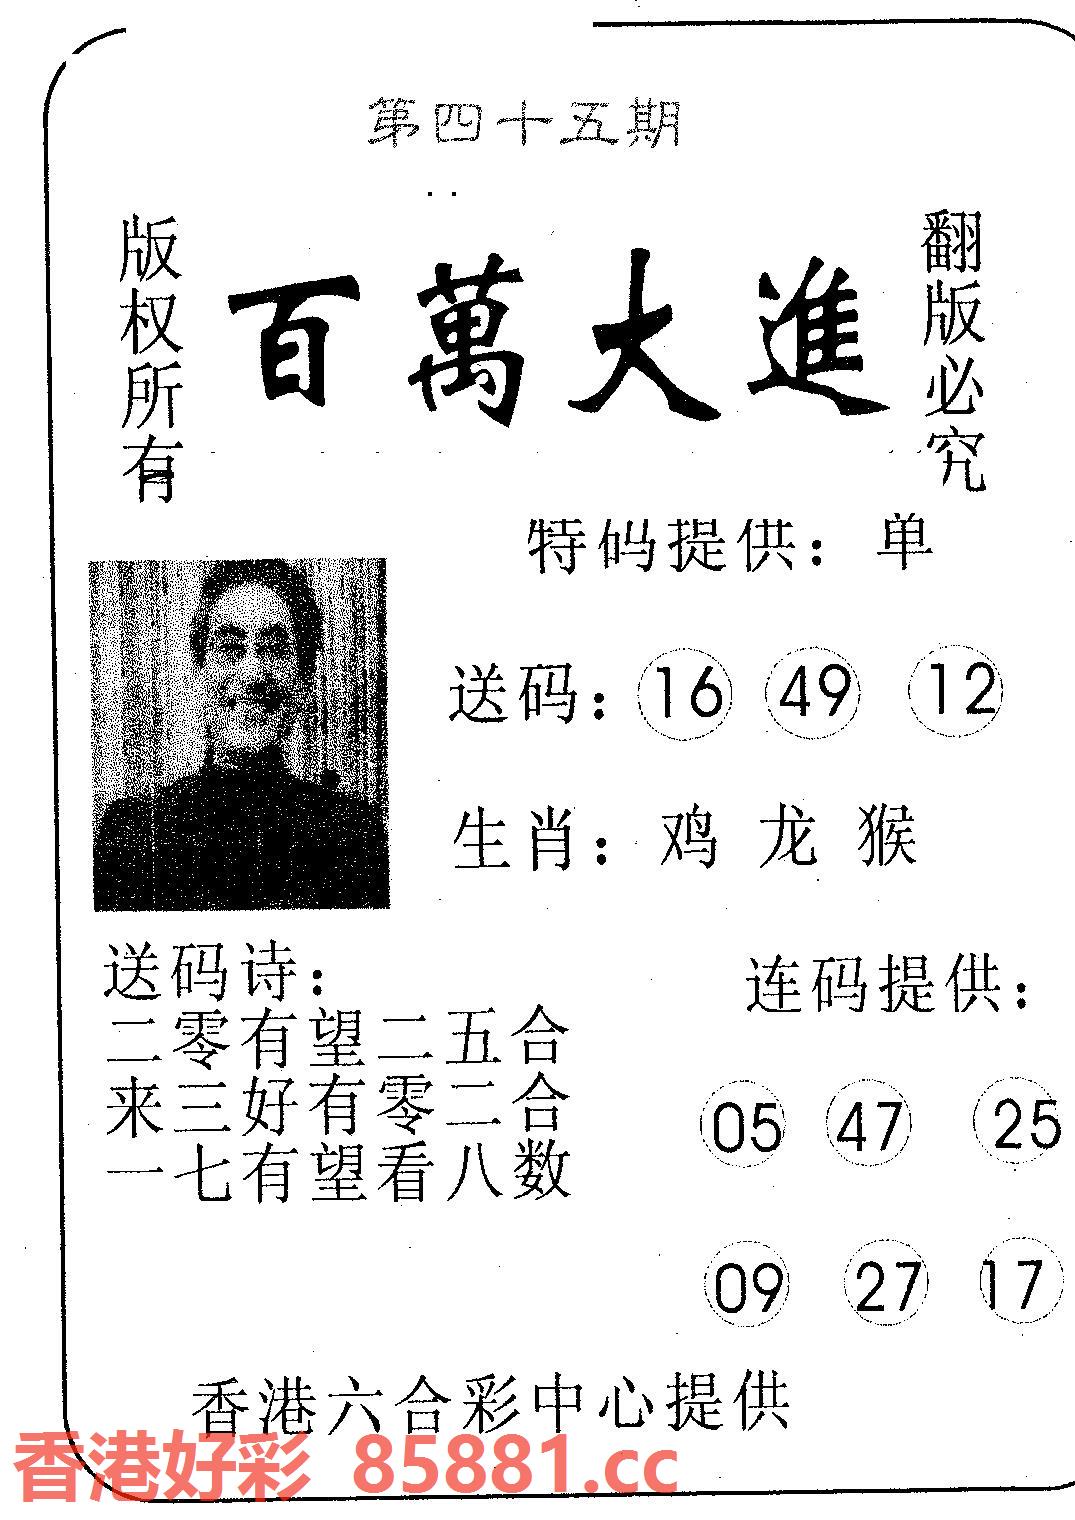 第四十五期
版权所有
百萬大進
翻版必究
特码提供：单
送码：16 49 12
生肖：鸡 龙 猴
送码诗：
二零有望二五合
来三好有零二合
一七有望看八数
连码提供：
05 47 25
09 27 17
香港六合彩中心提供
香港好彩 85881.cc